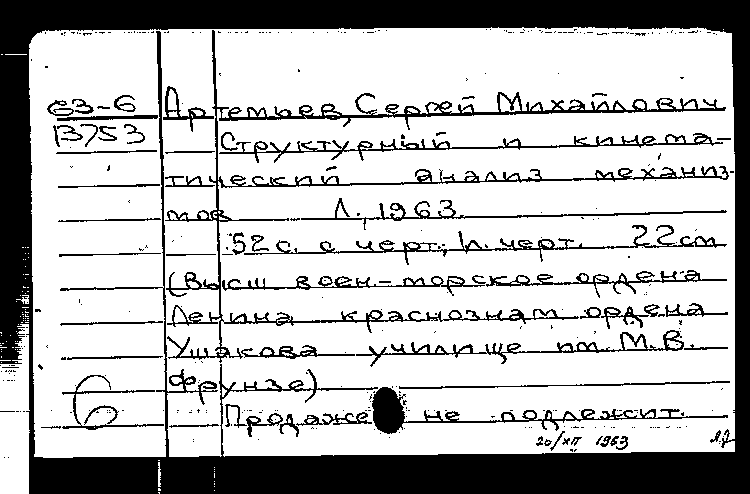 63-6 Артемьев, Сергей Михайлович
В753 Структурный и кинема-
тический анализ механиз-
мов Л., 1963.
52 с. с черт.; л. черт. 22 см
(Высш воен-морское ордена
Ленина краснознам ордена
Ушакова училище им М. В.
Фрунзе)
6 Продаже не подлежит.
20/XII 1963